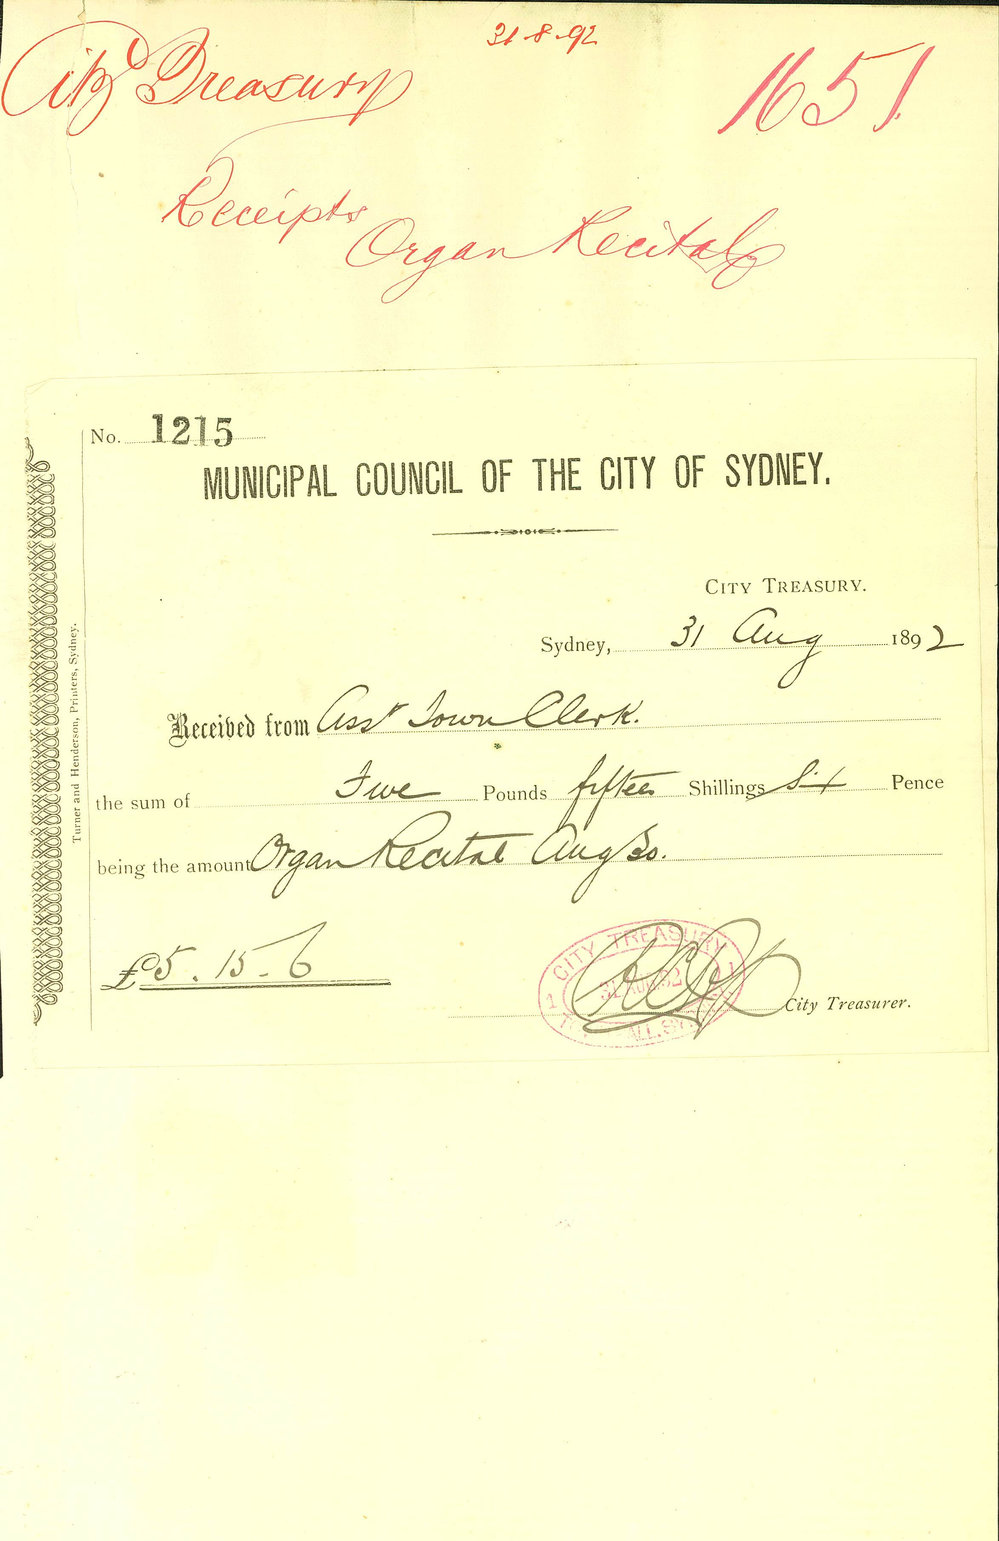 31-8-92
City Treasury
1651
Receipts
Organ Recitals
No. 1215
MUNICIPAL COUNCIL OF THE CITY OF SYDNEY.
CITY TREASURY.
Sydney, 31 Aug 1892
Received from Asst Town Clerk.
the sum of Five Pounds fifteen Shillings Six Pence
being the amount Organ Recital Aug 30.
£5. 15-6
CITY TREASURY
31 AUG. 92
City Treasurer.
Turner and Henderson, Printers, Sydney.